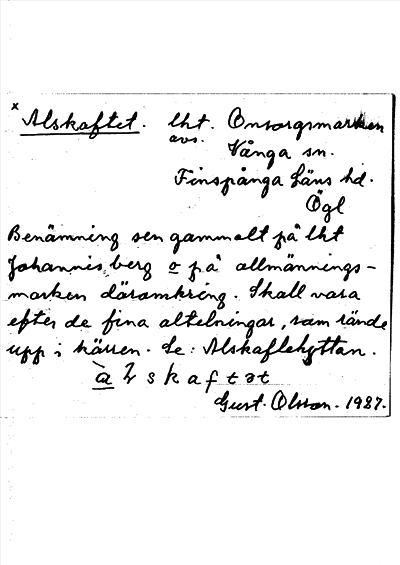 x Alskaftet. lht. Onsorgsmarken
avs. Vånga sn.
Finspånga Läns hd.
Ögl
Benämning sen gammalt på lht
Johannisberg o på allmännings-
marken däromkring. Skall vara
efter de fina altelningar, som rände
upp i kärren. Se: Alskaflehyttan.
Gust. Olsson. 1927.